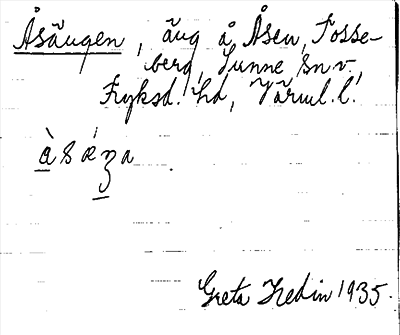 Åsängen, äng å Åsen, Fosse-
berg, Sunne sn v.,
Fryksd. hd, Värml. l.
Greta Hedin 1935.